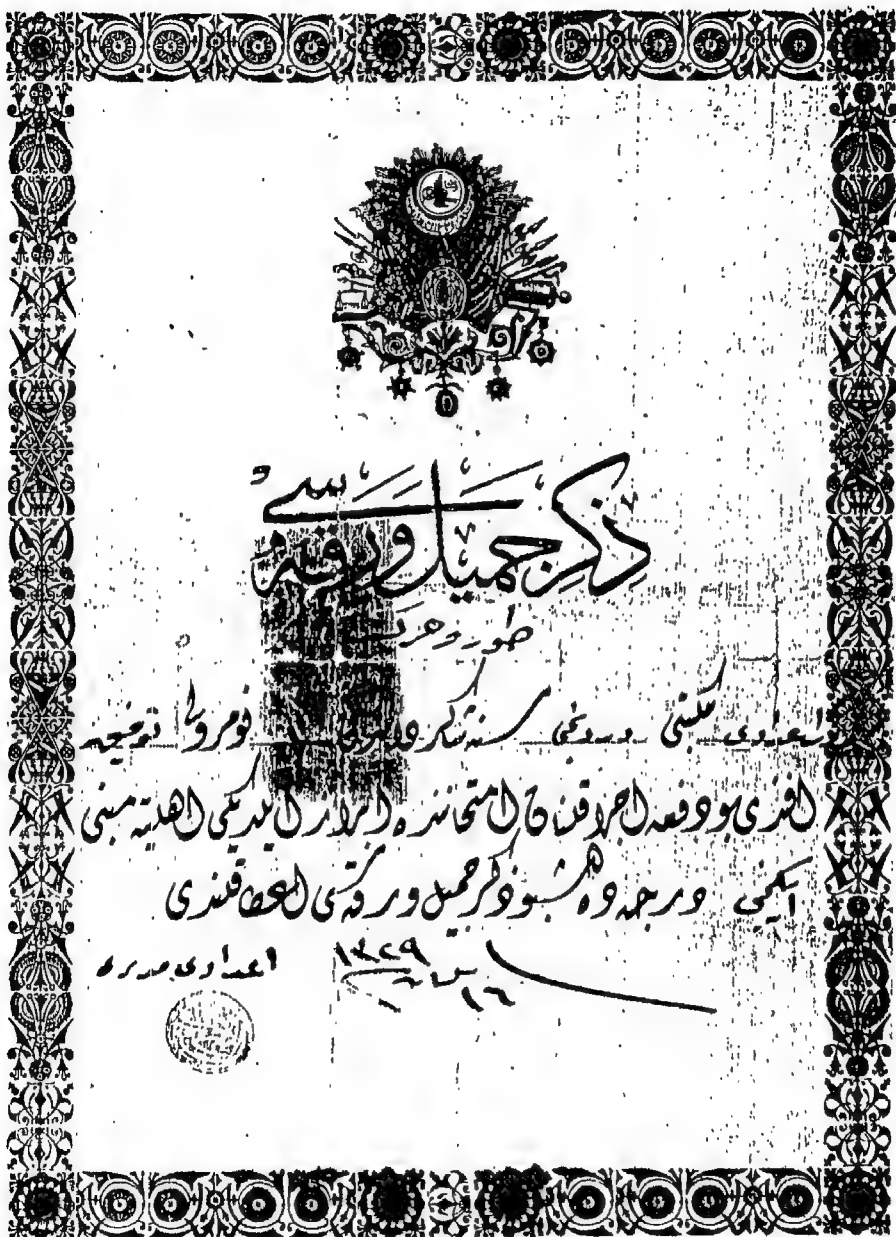 ذكر جميل ورقه سى
طور وحركت
اعدادى مكتبى دردنجى سنه شاكردانندن نومرولى توفيق
افندى بو دفعه اجرا قلنان امتحاننده ابراز ايلديكى اهليته مبنى
ايكنجى درجه ده اشبو ذكر جميل ورقه سى اعطا قلندى
١٦ ١٣٢٩
اعدادى مديرى